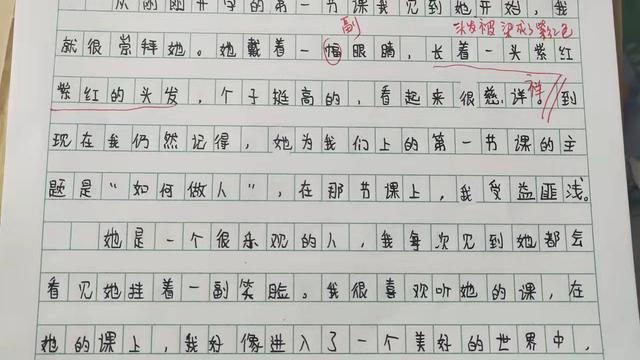 从刚刚开学的第一节课我见到她开始，我
副
头发被染成了紫红色
就很崇拜她。她戴着一幅眼睛，长着一头紫红
紫红的头发，个子挺高的，看起来很慈详。到
祥
现在我仍然记得，她为我们上的第一节课的主
题是“如何做人”，在那节课上，我受益匪浅。
她是一个很乐观的人，我每次见到她都会
看见她挂着一副笑脸。我很喜欢听她的课，在
她的课上，我好像进入了一个美好的世界中，